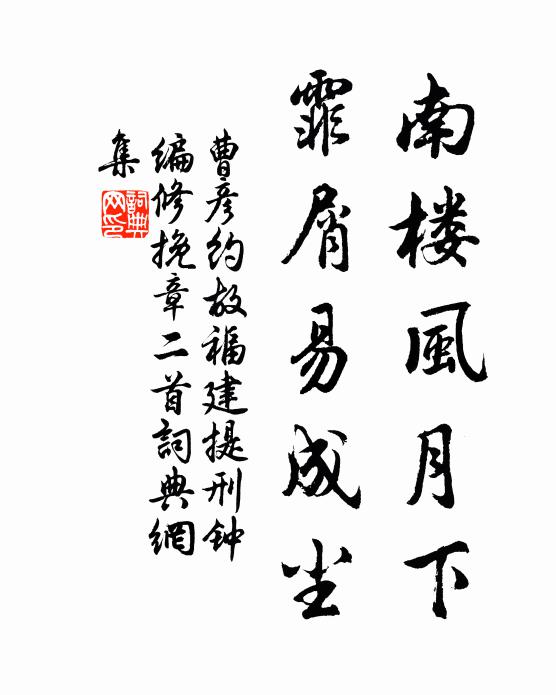 南楼風月下
霏屑易成尘
曹彦约故福建提刑钟
编修挽章二首詞典網
集
詞典
网印